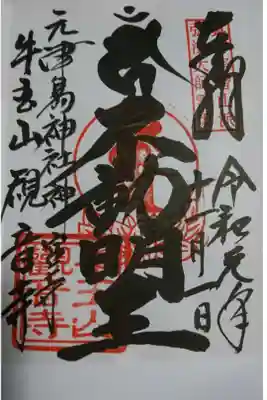 奉拝
令和元年
十一月一日
不動明王
元津島神社神宮寺
牛玉山観音寺